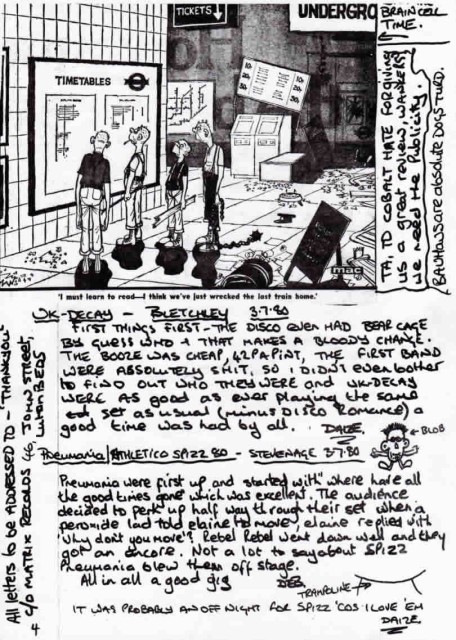 TICKETS
UNDERGRO
TIMETABLES
mac
'I must learn to read—I think we've just wrecked the last train home.'
BRAIN CELL
TIME.
TA, TO COBALT HATE FOR giving
us a great review, WANKERS!
we need the Publicity.
BAUHAUS are absolute DOGS TURD.
UK-DECAY - BLETCHLEY 3-7-80
FIRST THINGS FIRST - THE DISCO even HAD BEAR CAGE
BY GUESS WHO + THAT MAKES A BLOODY CHANGE.
THE BOOZE WAS CHEAP, 42PA PINT, THE FIRST BAND
WERE ABSOLUTELY SHIT, SO I DIDN'T even bother
to FIND OUT WHO THEY WERE and UK-DECAY
WERE AS good as ever playing the same
set as usual (minus DISCO Romance) a
good time was had by all. DAIZE,
BLOB
Pneumania/ATHLETICO SPIZZ 80 - STEVENAGE 3/7/80
Pneumania were first up and started with 'where have all
the good times gone' which was excellent. The audience
decided to perk up half way through their set when a
peroxide lad told elaine to 'move', elaine replied with
'why don't you move'? Rebel Rebel went down well and they
got an encore. Not a lot to say about SPIZZ
Pneumania blew them off stage.
All in all a good gig DEB,
TRAMPOLINE
IT WAS PROBABLY AN OFF NIGHT FOR SPIZZ 'COS I LOVE 'EM
DAIZE
All letters to be ADDRESSED TO - 'THANKYOU'
C/O MATRIX RECORDS 40, JOHN STREET,
Luton BEDS
4